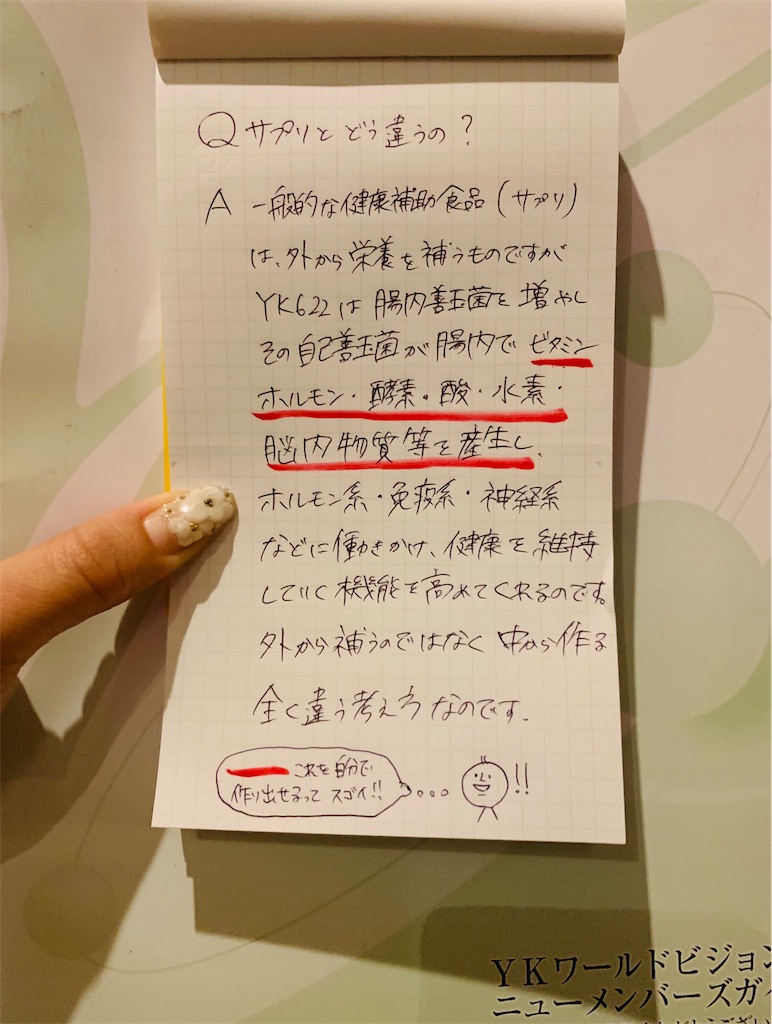 Q サプリと どう違うの?
A 一般的な健康補助食品(サプリ)
は、外から栄養を補うものですが
YK622は腸内善玉菌を増やし
その自己善玉菌が腸内でビタミン
ホルモン・酵素・酸・水素・
脳内物質等を産生し、
ホルモン系・免疫系・神経系
などに働きかけ、健康を維持
していく機能を高めてくれるのです。
外から補うのではなく 中から作る
全く違う考え方なのです.
これを自分で
作り出せるって スゴイ!!
!!
YKワールドビジョン
ニューメンバーズガイ